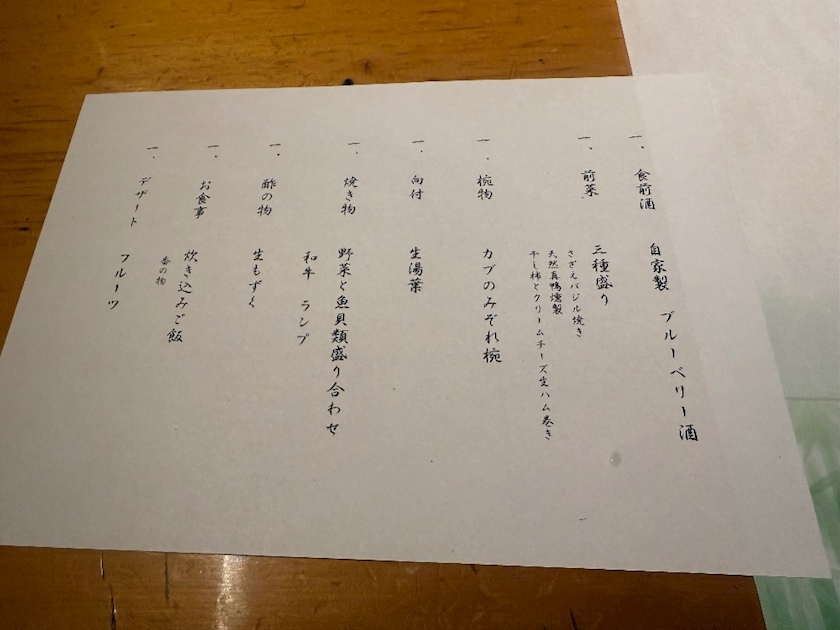 一. 食前酒 自家製 ブルーベリー酒
一. 前菜 三種盛り
さざえバジル焼き
天然真鴨燻製
干し柿とクリームチーズ生ハム巻き
一. 椀物 カブのみぞれ椀
一. 向付 生湯葉
一. 焼き物 野菜と魚貝類盛り合わせ
和牛 ランプ
一. 酢の物 生もずく
一. お食事 炊き込みご飯
香の物
一. デザート フルーツ